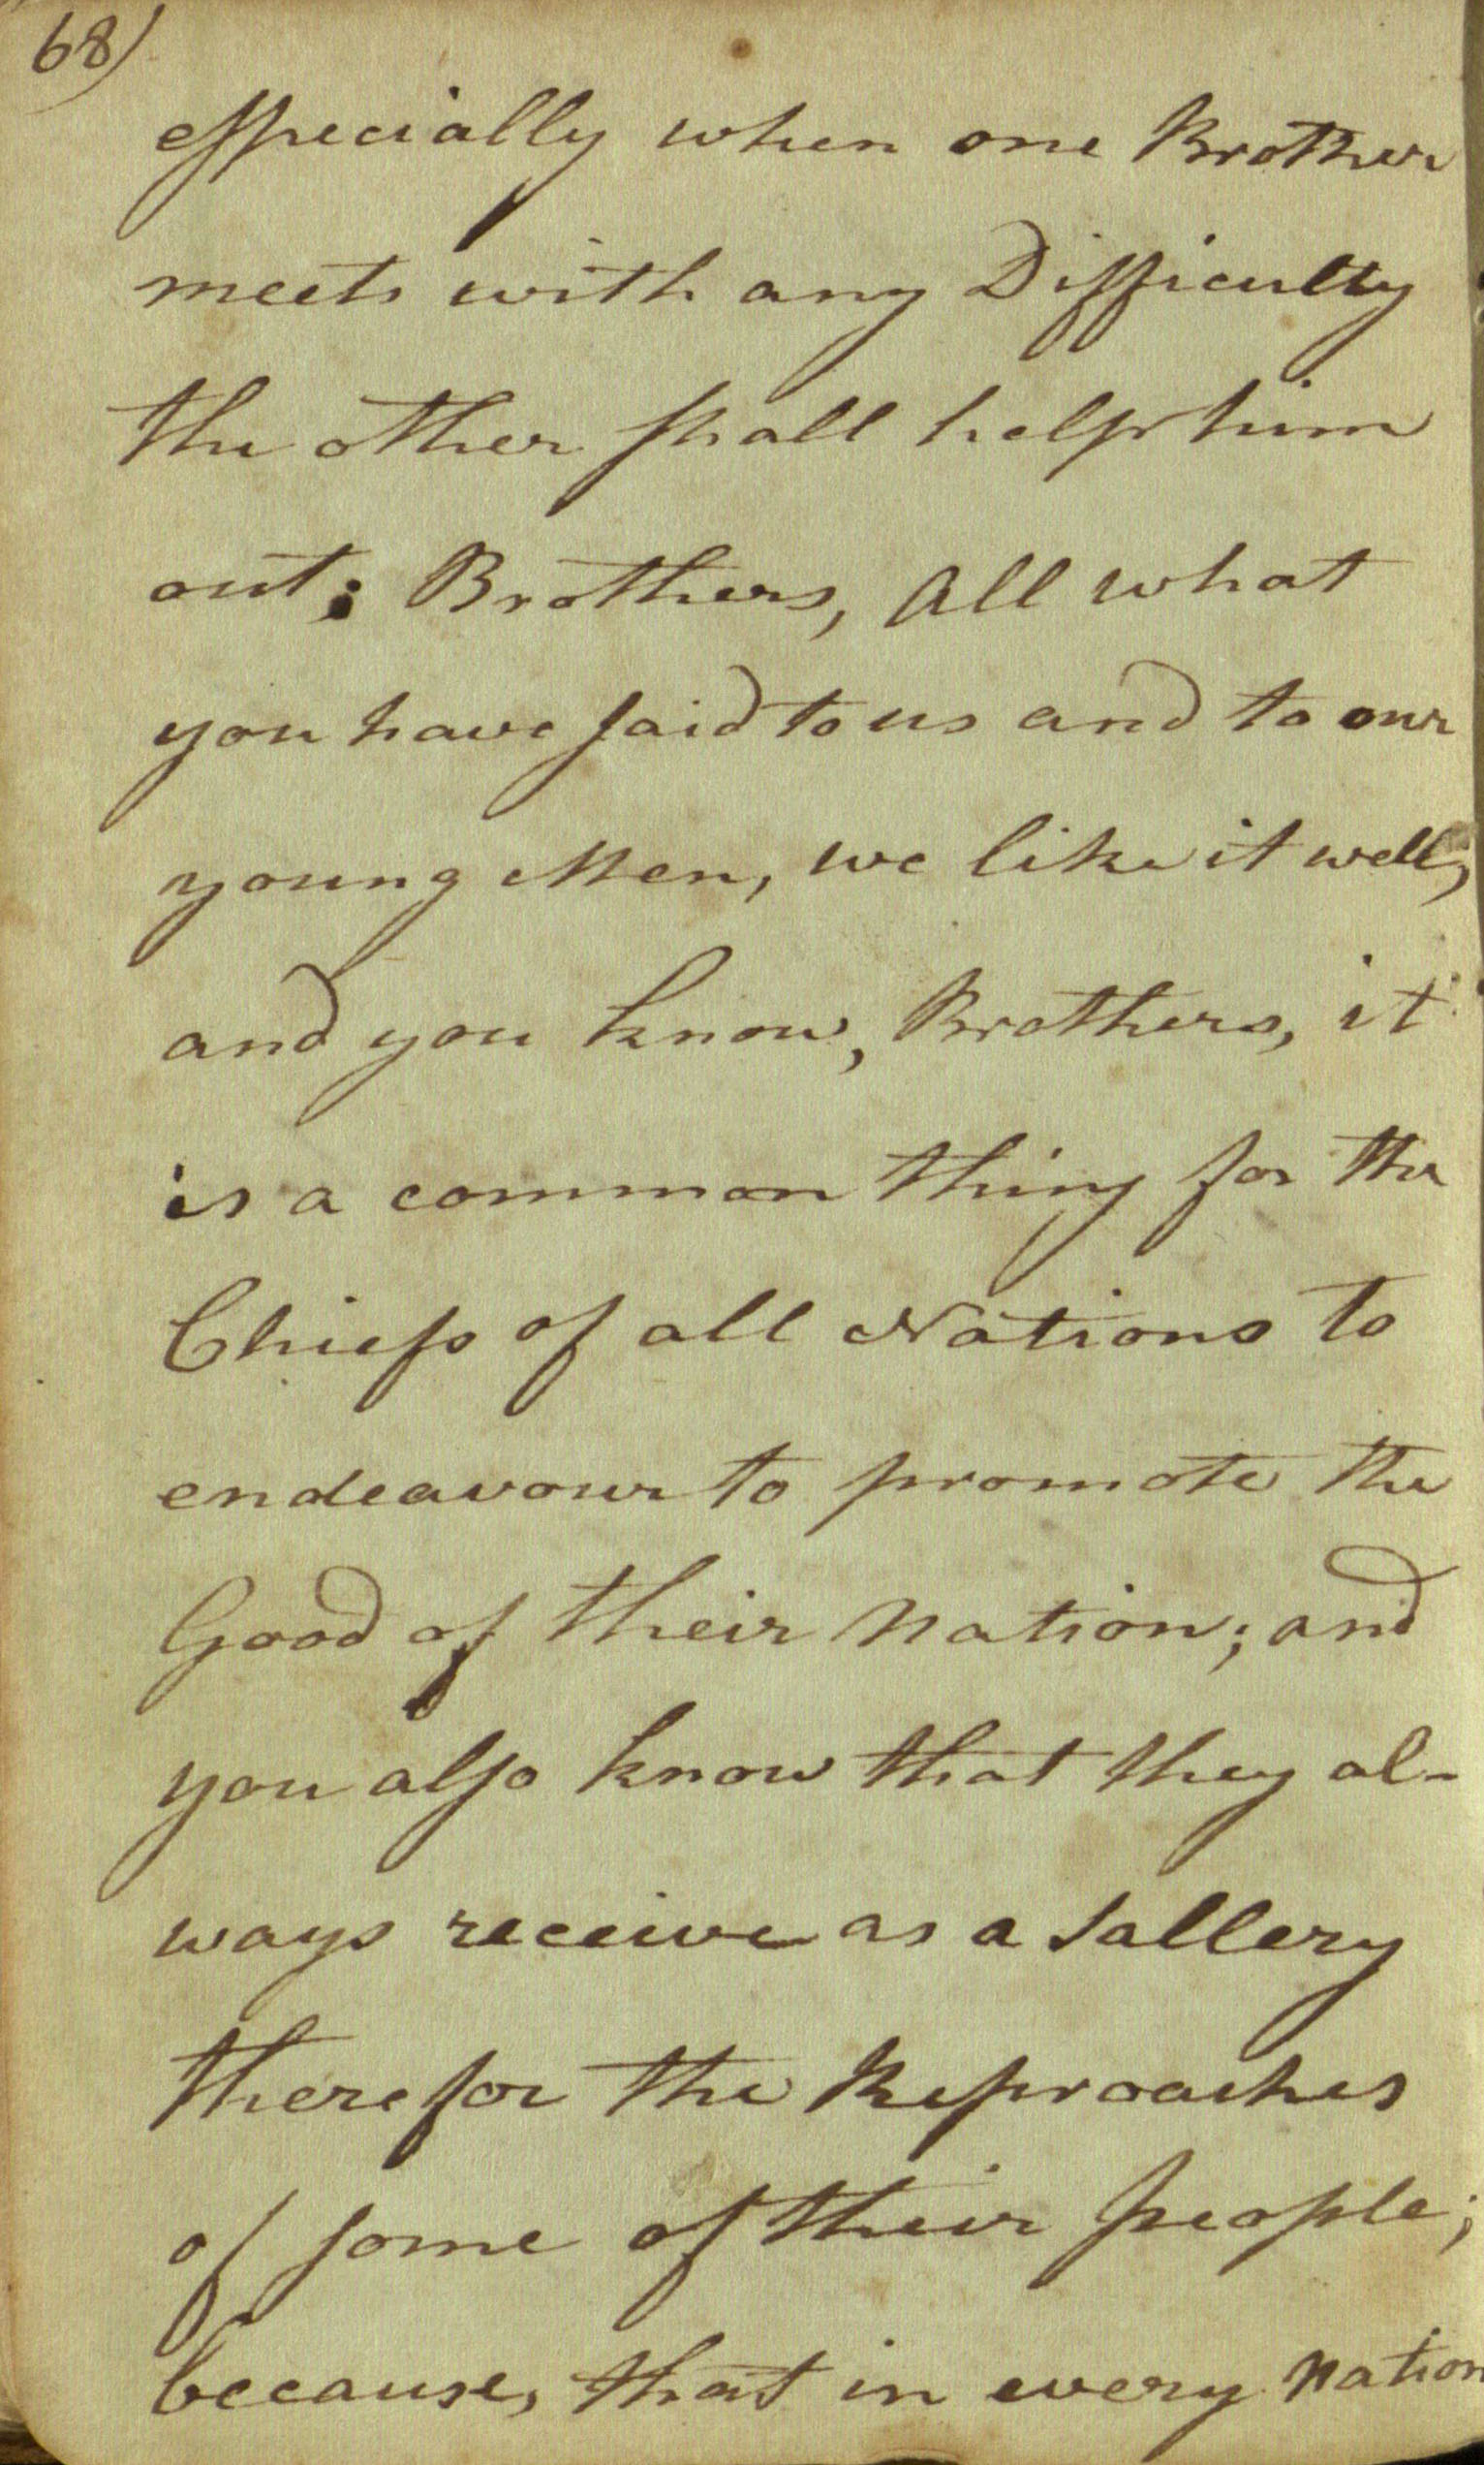 68)
especially when one Brother
meets with any Difficulty
the other shall help him
out; Brothers, All what
you have said to us and to our
young Men, we like it well,
and you know, Brothers, it
is a common thing for the
Chiefs of all Nations to
endeavour to promote the
Good of their Nation; and
you also know that they al-
ways receive as a Sallery
therefor the Reproaches
of some of their people;
because, that in every Nation